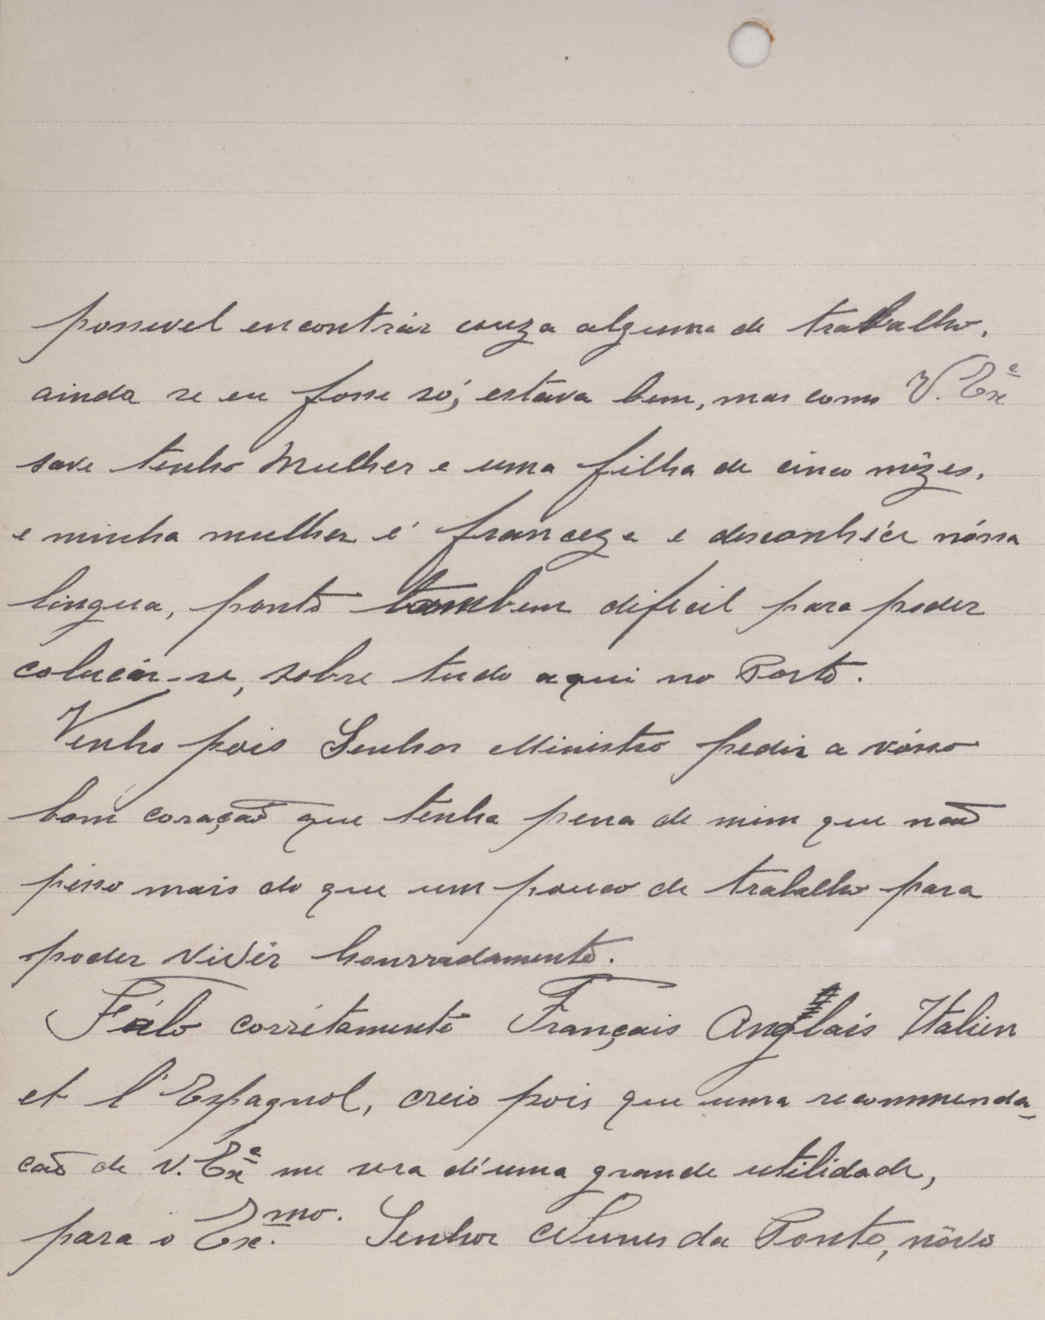 possivel encontrár couza alguma de trabalho,
ainda se eu fosse só, estava bem, mas como V. Exª
save tenho Mulher e uma filha de cinco mêzes,
e minha mulher é franceza e desconhéce nóssa
lingua, ponto tambem dificil para poder
colucár-se, sobre tudo aqui no Porto.
Venho pois Senhor Ministro pedir a vósso
bom coraçaõ que tenha pena de mim que naõ
pésso mais do que um pouco de trabalho para
poder vivêr honrradamente.
Fálo corrétamente Français Anglais Italien
et l'Espagnol, creio pois que uma recommenda-
caõ de V. Exª me sera d'uma grande utilidade,
para o Exmo. Senhor Nunes da Ponte, nôvo